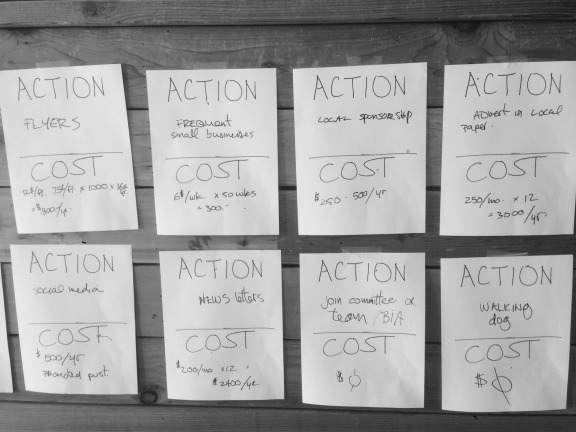 ACTION
FLYERS
COST
=$300/yr.
ACTION
FREQUENT
small businesses
COST
6$/wk. x 50 wks
= 300.
ACTION
LOCAL sponsorship
COST
$250 - 500/yr
ACTION
ADVERT in Local
paper.
COST
250/mo. x 12
= 3000/yr
ACTION
social media
COST
$500/yr
promoted post.
ACTION
NEWS letters
COST
$200/mo x12
$2400/yr
ACTION
join committee or
team /BIA
COST
$0
ACTION
WALKING
dog
COST
$0